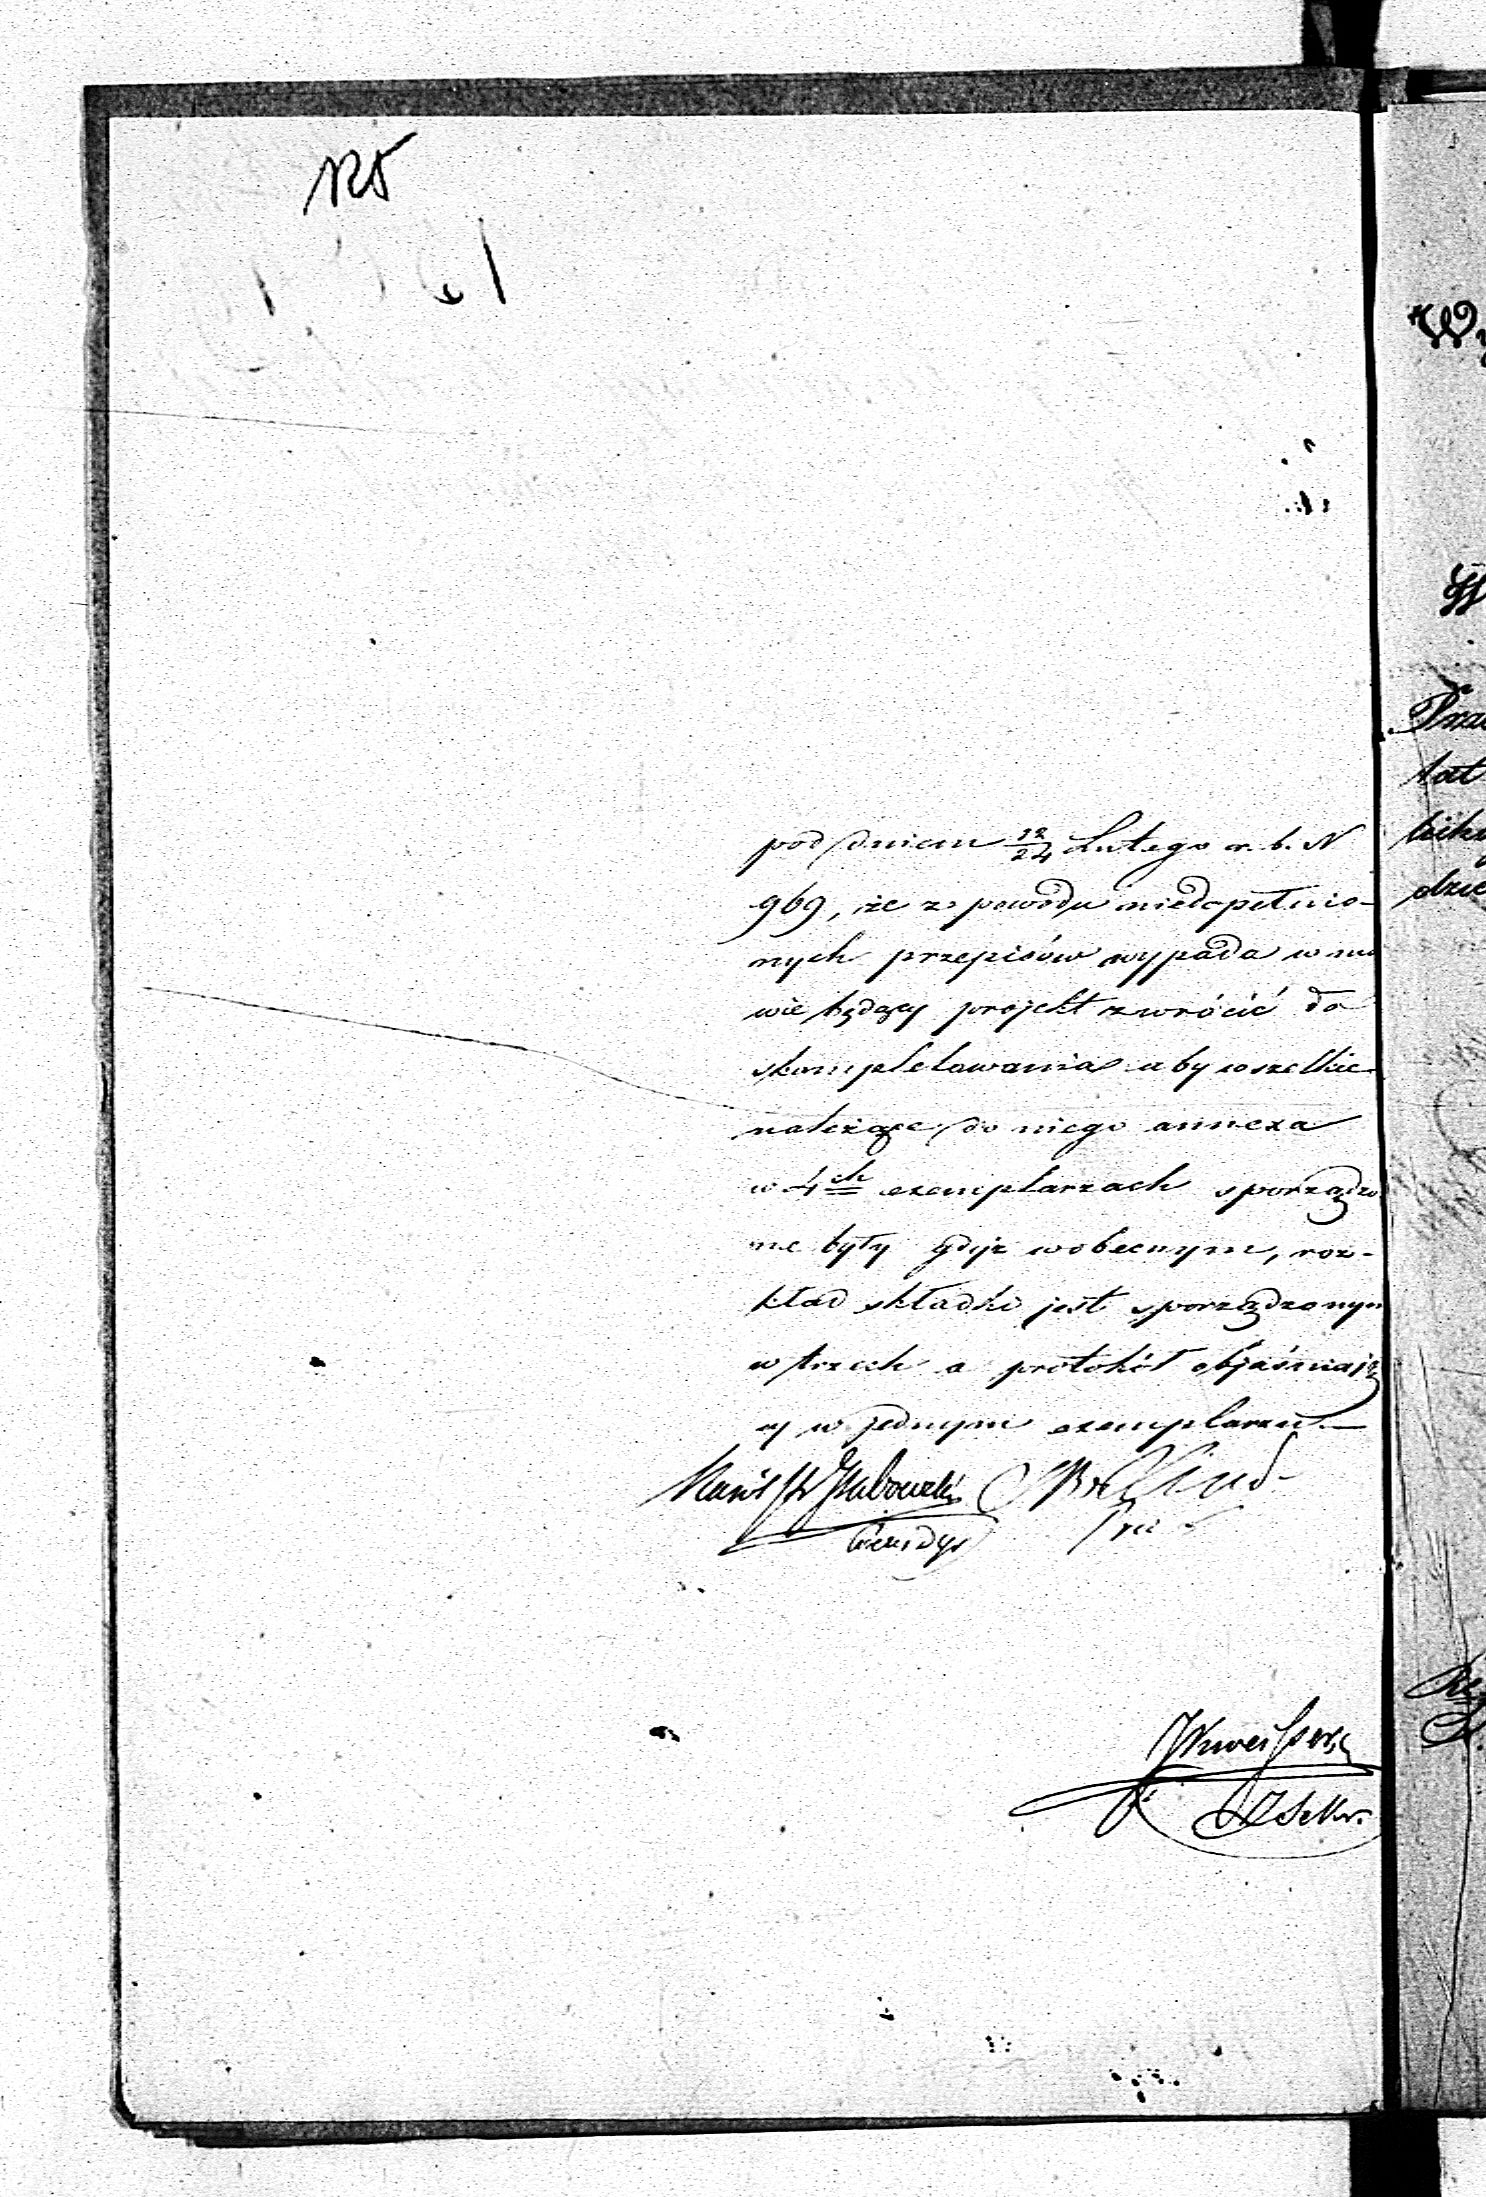 125
pod dniem 12/24 Lutego r. b. N
969, że z powodu niedopełnio-
nych przepisów wypada w mo
wie będący projekt zwrócić do
skompletowania aby wszelkie
należące do niego annexa
w 4ch exemplarzach sporządzo
ne były gdyż w obecnym, roz-
kład składki jest sporządzonym
w trzech a protokół objaśniają
cy w jednym exemplarzu.—
Sekr.